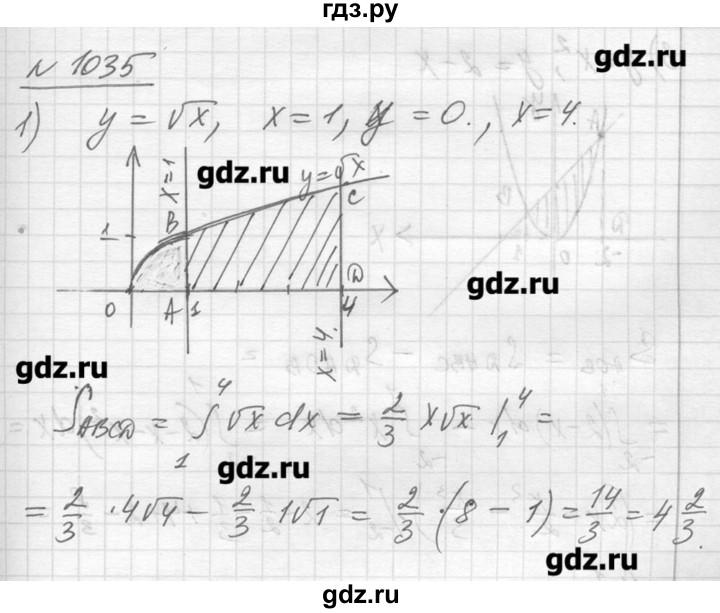 гдз.ру
gdz.ru
№ 1035
1) y = √x, x = 1, y = 0., x = 4.
gdz.ru
x = 1
y = √x
B
C
1
0
A
1
D
4
x = 4.
gdz.ru
gdz.ru
S_ABCD = ∫₁⁴ √x dx = 2/3 x√x |₁⁴ =
gdz.ru
= 2/3 · 4√4 − 2/3 · 1√1 = 2/3 · (8 − 1) = 14/3 = 4 2/3.
gdz.ru
gdz.ru